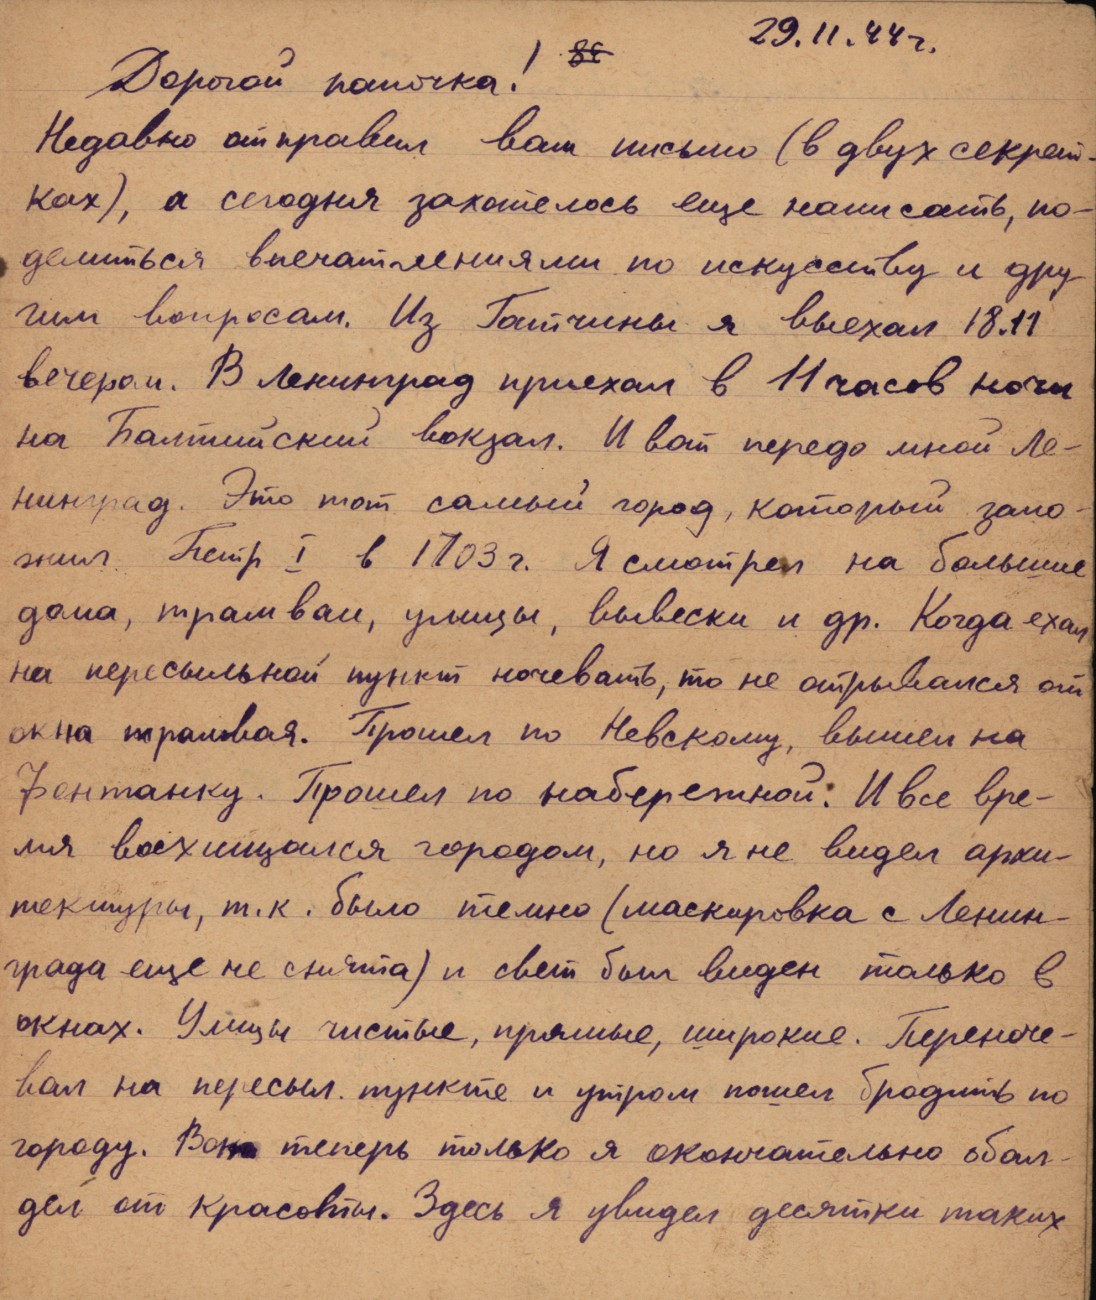 29.11.44г.
Дорогой папочка!
Недавно отправил вам письмо (в двух секрет-
ках), а сегодня захотелось еще написать, по-
делиться впечатлениями по искусству и дру-
гим вопросам. Из Гатчины я выехал 18.11
вечером. В Ленинград приехал в 11 часов ночи
на Балтийский вокзал. И вот передо мной Ле-
нинград. Это тот самый город, который зало-
жил Петр I в 1703 г. Я смотрел на большие
дома, трамваи, улицы, вывески и др. Когда ехал
на пересыльной пункт ночевать, то не отрывался от
окна трамвая. Прошел по Невскому, вышел на
Фонтанку. Прошел по набережной. И все вре-
мя восхищался городом, но я не видел архи-
тектуры, т.к. было темно (маскировка с Ленин-
града еще не снята) и свет был виден только в
окнах. Улицы чистые, прямые, широкие. Переноче-
вал на пересыл. пункте и утром пошел бродить по
городу. Вот теперь только я окончательно обал-
дел от красоты. Здесь я увидел десятки таких